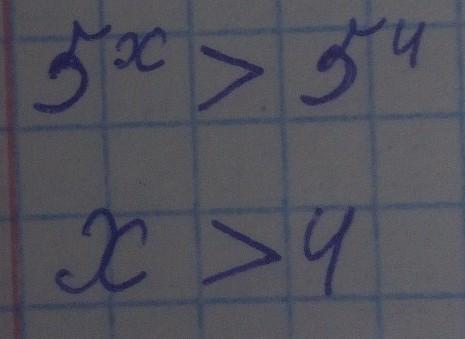 5^x > 5^4
x > 4